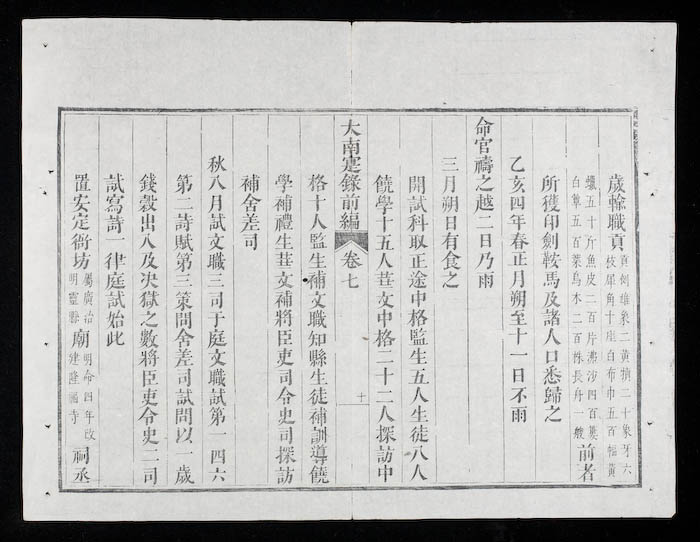 歲輸職貢貢例雄象二黃犢二十象牙六枝犀角十座白布巾五百幅黃蠟五十斤魚皮二百片沸沙四百簍白簟五百葉烏木二百株長舟一艘前者
所獲印劍鞍馬及諸人口悉歸之
乙亥四年春正月朔至十一日不雨
命官禱之越二日乃雨
三月朔日有食之
開試科取正途中格監生五人生徒八人
饒學十五人華文中格二十二人探訪中
大南寔錄前編 卷七 十
格十人監生補文職知縣生徒補訓導饒
學補禮生華文補將臣吏司令史司探訪
補舍差司
秋八月試文職三司于庭文職試第一四六
第二詩賦第三策問舍差司試問以一歲
錢穀出入及決獄之數將臣吏令史二司
試寫詩一律庭試始此
置安定衙坊屬廣治明靈縣廟明命四年改建隆福寺祠丞